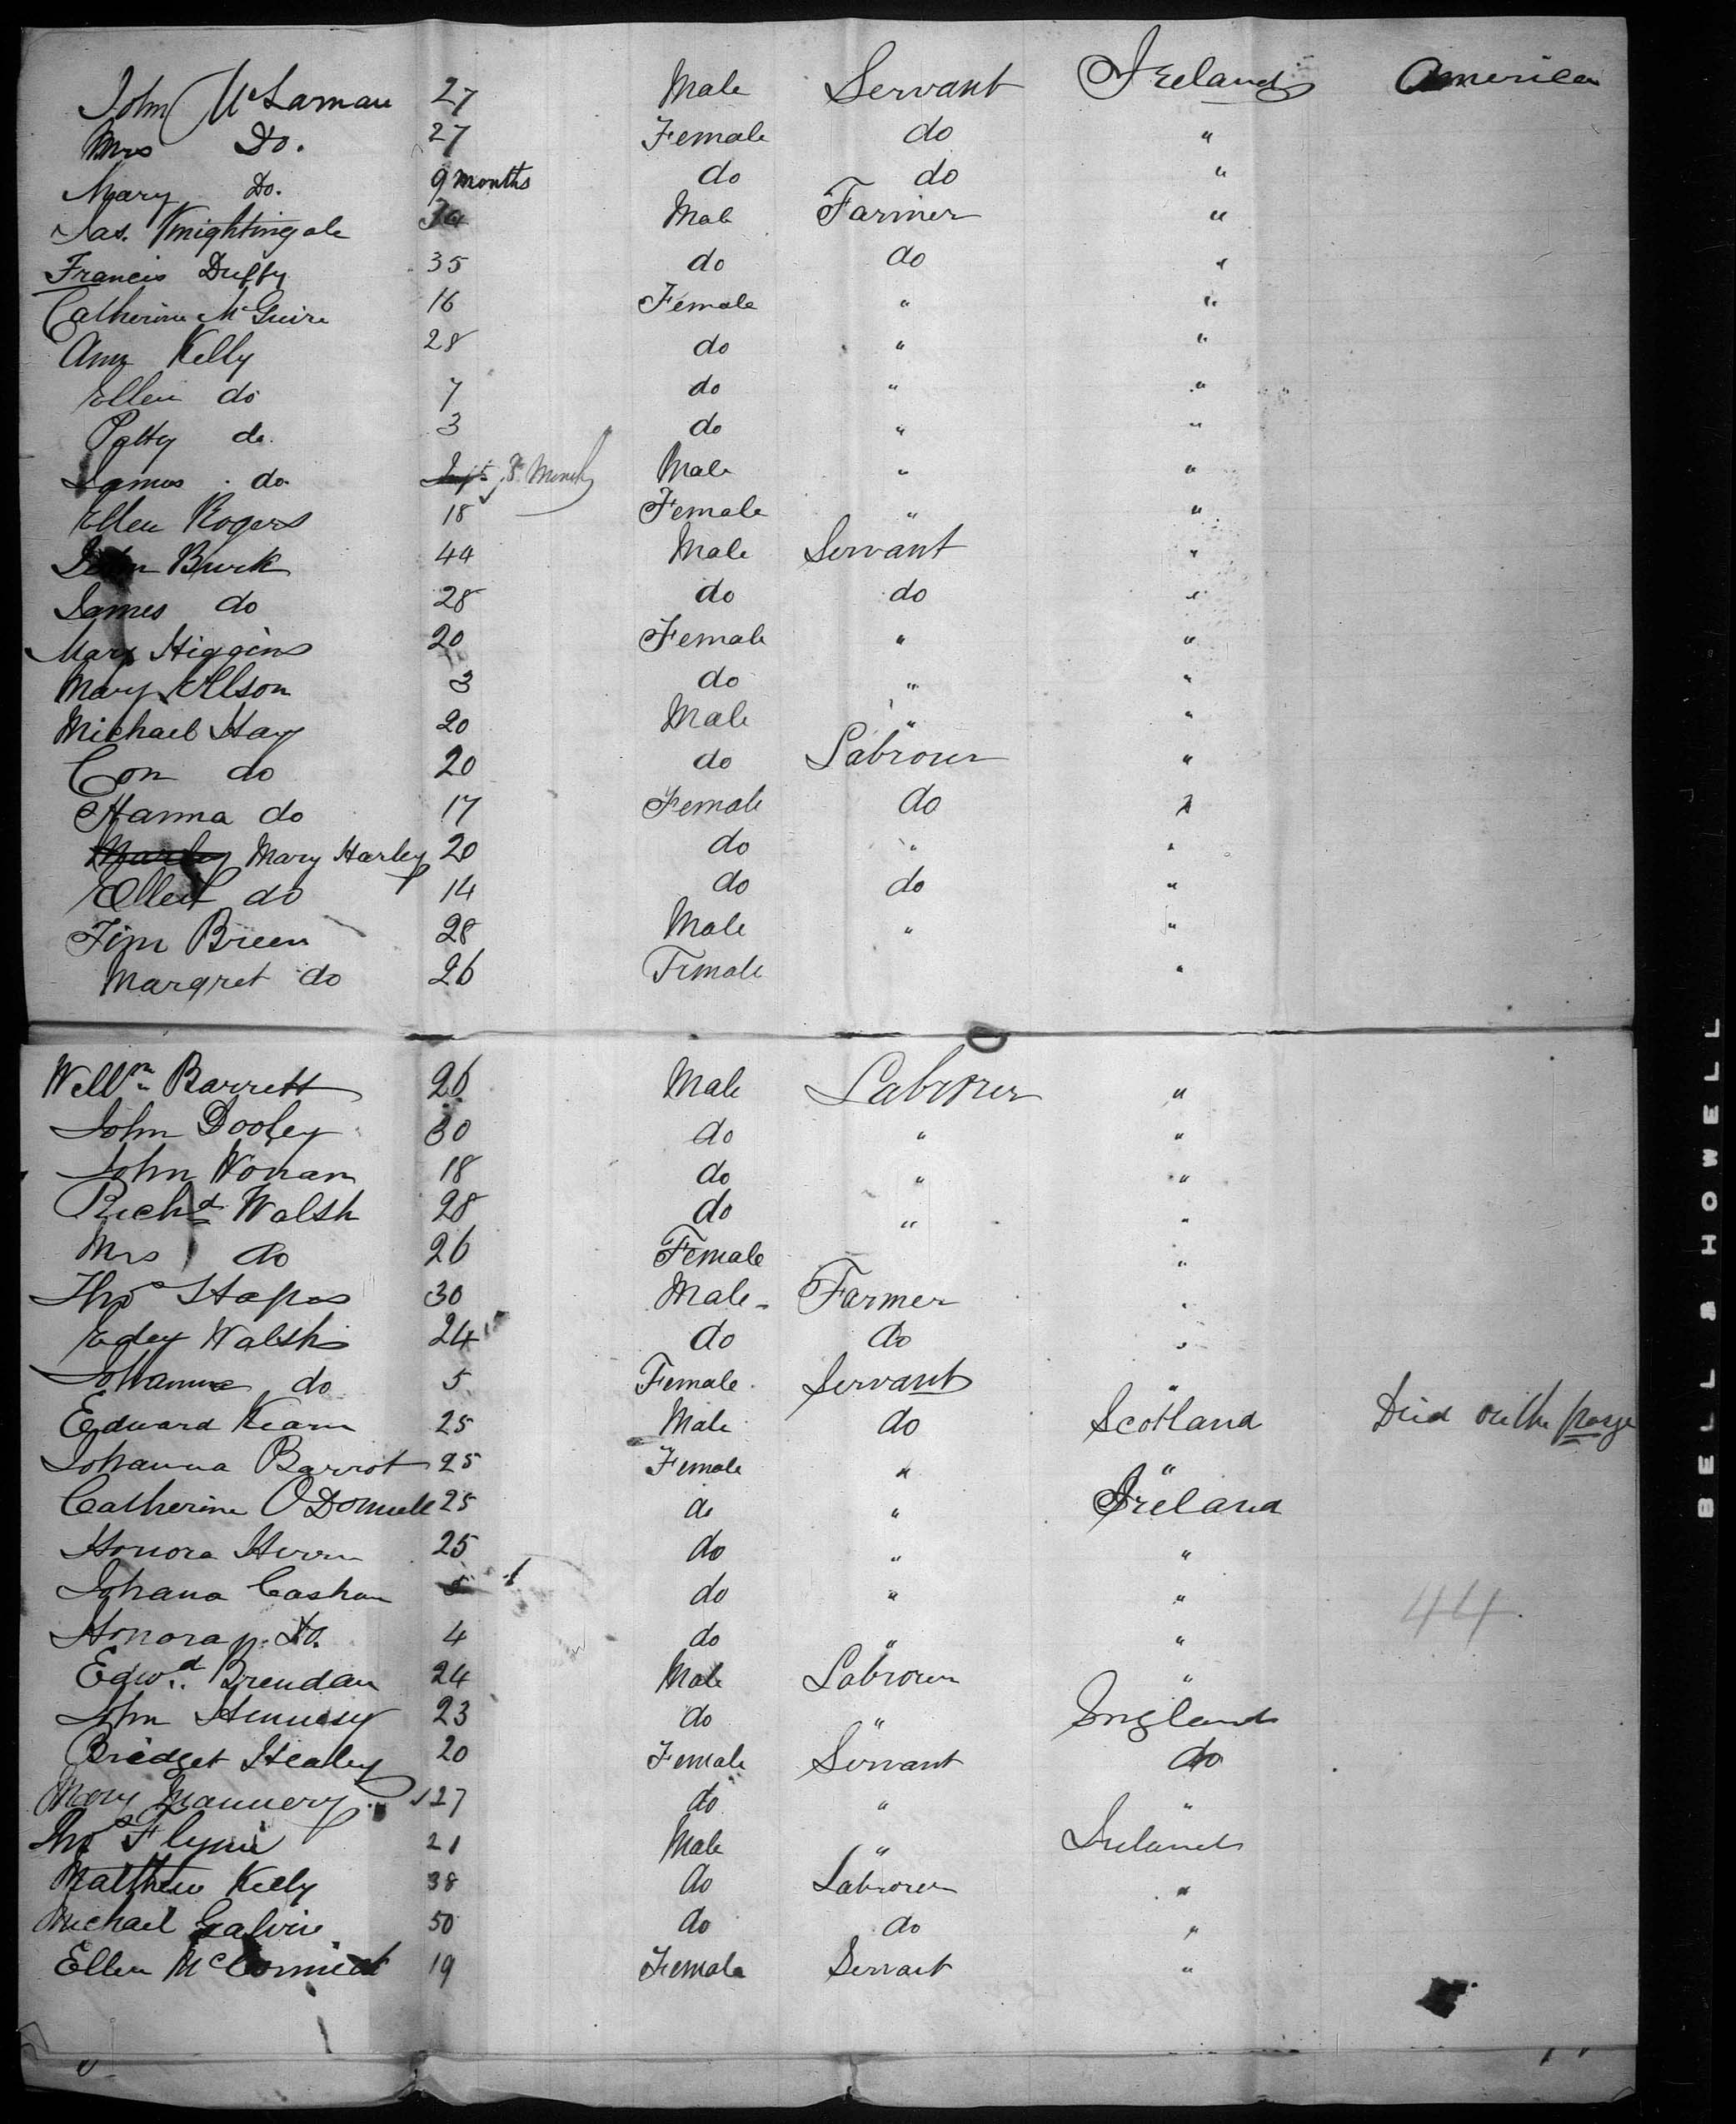 John McLaman 27 Male Servant Ireland America
Mrs Do. 27 Female do "
Mary Do. 9 months do do "
Jas. Knightingale Male Farmer "
Francis Duffy 35 do do "
Catherine McGuire 16 Female " "
Ann Kelly 28 do " "
Ellen do 7 do " "
Patty do 3 do " "
James do Male " "
Ellen Rogers 18 Female " "
Burk 44 Male Servant "
James do 28 do do "
Mary Higgins 20 Female " "
Mary Ellson 3 do " "
Michael Hay 20 Male " "
Con do 20 do Labrour "
Hanna do 17 Female do "
Mary Harley 20 do " "
Ellen do 14 do do "
Tim Breen 28 Male " "
Margret do 26 Female "
Willm Barrett 26 Male Labrour "
John Dooley 30 do " "
John Honan 18 do " "
Richd Walsh 28 do " "
Mrs do 26 Female "
Thos 30 Male Farmer "
Walsh 24 do do "
Johanna do 5 Female Servant "
Edward Kearn 25 Male do Scotland Died on the
Johanna Barrot 25 Female " "
Catherine O'Donnell 25 do " Ireland
Honora 25 do " "
Johana Cashan do " "
Honora Do. 4 do " "
Edwd. Brendan 24 Male Labrour "
John Hennesy 23 do " England
Bridget Healey 20 Female Servant do
Mary Mannery 27 do " "
Thos Flynn 21 Male " Ireland
Matthew Kiely 38 do Labrour "
Michael Galvin 50 do do "
Ellen McCormick 19 Female Servant "
44
BELL & HOWELL